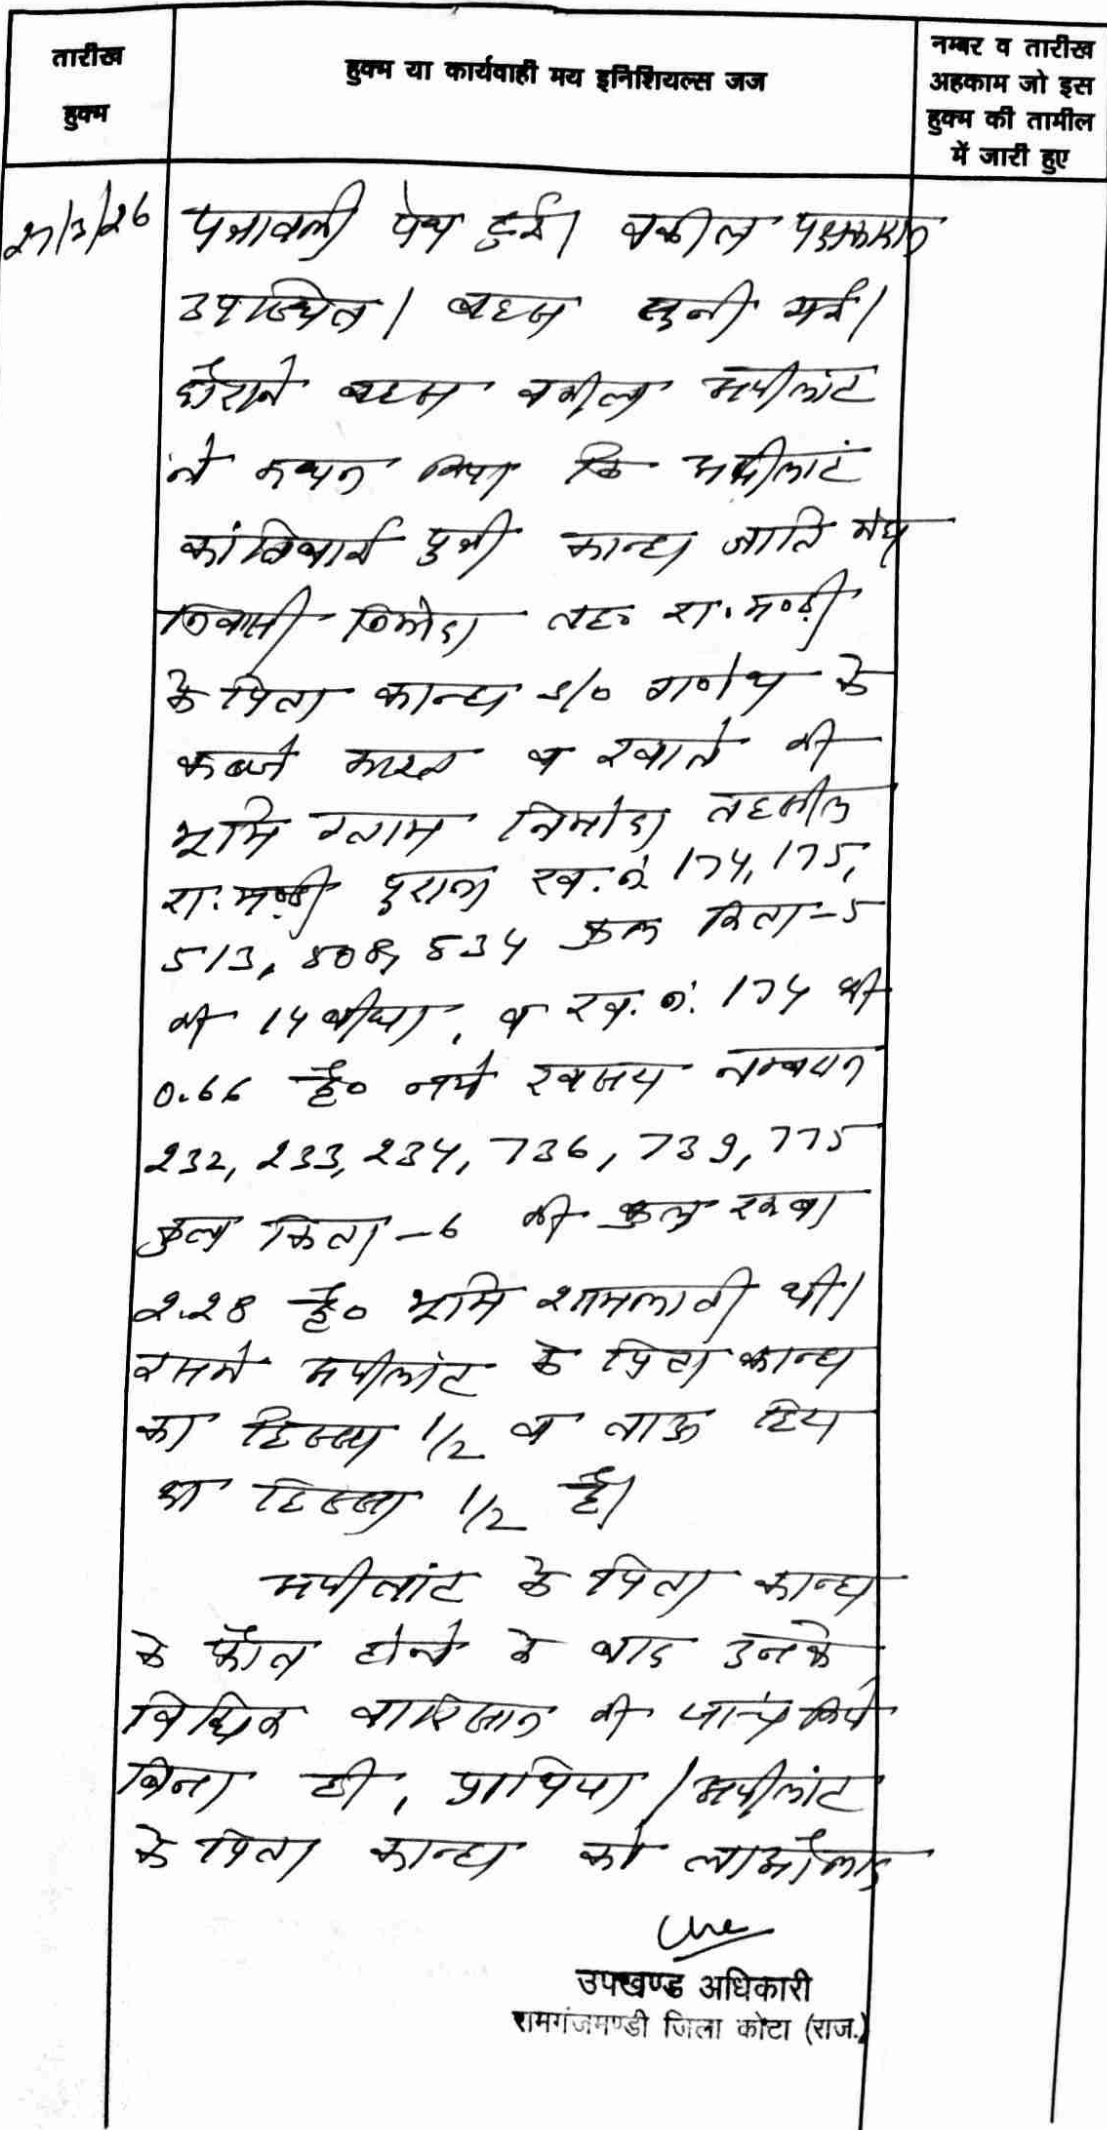 तारीख
हुक्म
हुक्म या कार्यवाही मय इनिशियल्स जज
नम्बर व तारीख
अहकाम जो इस
हुक्म की तामील
में जारी हुए
पत्रावली पेश हुई। वकील पक्षकारान
उपस्थित। बहस सुनी गई।
दौराने बहस वकील अपीलांट
ने कथन किया कि अपीलांट
पुत्री कान्हा जाति
निवासी निमोडा तह० रा.मण्डी
के पिता कान्हा s/o गणेश के
कब्जे काश्त व खाते की
भूमि ग्राम निमोडा तहसील
रा.मण्डी पुराना ख.नं 174, 175,
513, 808, 834 कुल किता-5
की 14 बीघा, व ख.नं. 174 की
0.66 है० नये खसरा नम्बरान
232, 233, 234, 736, 739, 775
कुल किता-6 की कुल रकबा
2.28 है० भूमि शामलाती थी।
अपीलांट के पिता कान्हा
का हिस्सा 1/2 व
का हिस्सा 1/2 है।
अपीलांट के पिता कान्हा
के फौत होने के बाद उनके
विधिक वारिसान की जांच किये
बिना ही, प्रार्थिया/अपीलांट
के पिता कान्हा को लाऔलाद
उपखण्ड अधिकारी
रामगंजमण्डी जिला कोटा (राज.)